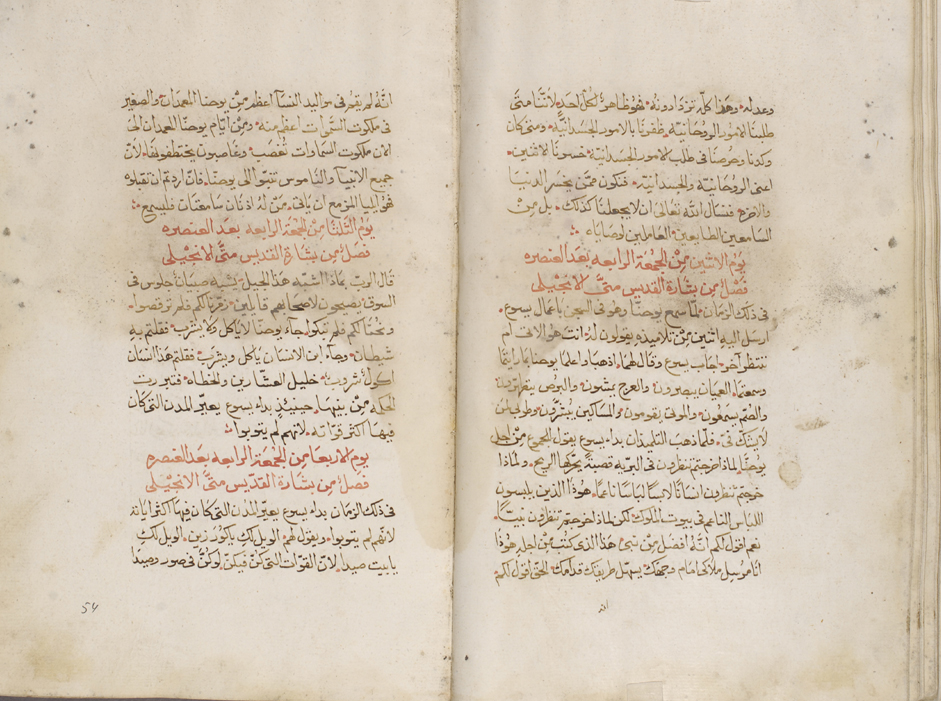 وعدله وهذا كله تزدادونه فهو ظاهر لكل احد لاننا متى
طلبنا الامور الروحانيه ظفرنا بالامور الجسدانيه ومتى كان
وكدنا وحرصنا فى طلب الامور الجسدانيه خسرنا الاثنين
اعنى الروحانية والجسدانية فنكون ممن يخسر الدنيا
والاخره فنسال الله تعالى ان لا يجعلنا كذلك بل من
السامعين الطايعين العاملين لوصاياه
يوم الاثنين من الجمعة الرابعه بعد العنصره
فصل من بشارة القديس متى الانجيلى
فى ذلك الزمان لما سمع يوحنا وهو فى السجن باعمال يسوع
ارسل اليه اثنين من تلاميذه يقولون له انت هو الاتى ام
ننتظر آخر اجاب يسوع وقال لهما اذهبا واعلما يوحنا بما رايتما
وسمعتما العميان يبصرون والعرج يمشون والبرص يتطهرون
والصم يسمعون والموتى يقومون والمساكين يبشرون وطوبى لمن
لا يشك فى فلما ذهب التلميذان بداء يسوع يقول للجموع من اجل
يوحنا لماذا خرجتم تنظرون فى البريه قصبة يحركها الريح ولماذا
خرجتم تنظرون انسانا لابسا لباسا ناعما هوذا الذين يلبسون
اللباس الناعم فى بيوت الملوك لكن لماذا خرجتم تنظرون نبيا
نعم اقول لكم انه افضل من نبى هذا الذى كتب من اجله هوذا
انا مرسل ملاكى امام وجهك يسهل طريقك قدامك الحق اقول لكم
انه
انه لم يقم فى مواليد النسآ اعظم من يوحنا المعمدان والصغير
فى ملكوت السموات اعظم منه ومن ايام يوحنا المعمدان الى
الان ملكوت السماوات تغصب وغاصبون يختطفونها لان
جميع الانبيآ والناموس تنبوا الى يوحنا فان اردتم ان تقبلوه
فهو ايليا المزمع ان ياتى من له اذنان سامعتان فليسمع
يوم الثلثا من الجمعة الرابعه بعد العنصره
فصل من بشارة القديس متى الانجيلى
قال الرب بماذا اشبه هذا الجيل يشبه صبيان جلوس فى
السوق يصيحون لاصحابهم قايلين زمرنا لكم فلم ترقصوا
ونحنا لكم فلم تبكوا جآء يوحنا لا ياكل ولا يشرب فقلتم به
شيطان وجآء ابن الانسان ياكل ويشرب فقلتم هذا انسان
اكول شروب خليل العشارين والخطاه فتبررت
الحكمه من بنيها حينيذ بداء يسوع يعير المدن التى كان
فيها اكثر قواته لانهم لم يتوبوا
يوم الاربعا من الجمعة الرابعه بعد العنصره
فصل من بشارة القديس متى الانجيلى
فى ذلك الزمان بداء يسوع يعير المدن التى كان فيها اكثر اياته
لانهم لم يتوبوا ويقول لهم الويل لكِ يا كورزين الويل لكِ
يا بيت صيدا لان القوات التى كن فيكن لو كن فى صور وصيدا
54